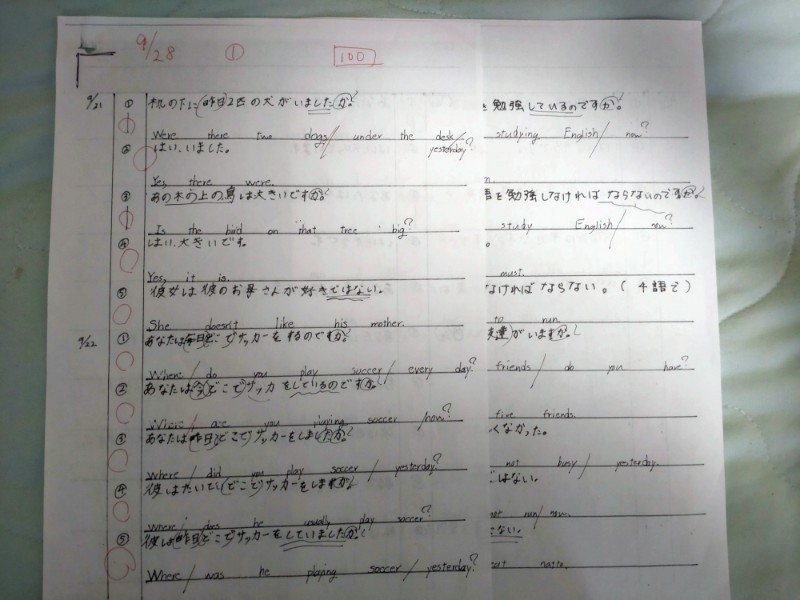 9/28 ① 100
9/21 ① 机の下に昨日2匹の犬がいましたか。
Were there two dogs / under the desk / yesterday?
② はい、いました。
Yes, there were.
③ あの木の上の鳥は大きいですか。
Is the bird on that tree big?
④ はい、大きいです。
Yes, it is.
⑤ 彼女は彼のお母さんが好きではない。
She doesn't like his mother.
9/22 ① あなたは毎日どこでサッカーをするのですか。
Where / do you play soccer / every day?
② あなたは今どこでサッカーをしているのですか。
Where / are you playing soccer / now?
③ あなたは昨日どこでサッカーをしましたか。
Where / did you play soccer / yesterday?
④ 彼はたいていどこでサッカーをしますか。
Where / does he usually play soccer?
⑤ 彼は昨日どこでサッカーをしていましたか。
Where / was he playing soccer / yesterday?
を勉強しているのですか。
studying English / now?
語を勉強しなければならないのですか。
study English / now?
must.
なければならない。(4語で)
to run
友達がいますか。
friends / do you have?
five friends.
くなかった。
not busy / yesterday.
はない。
not run / now.
natto.